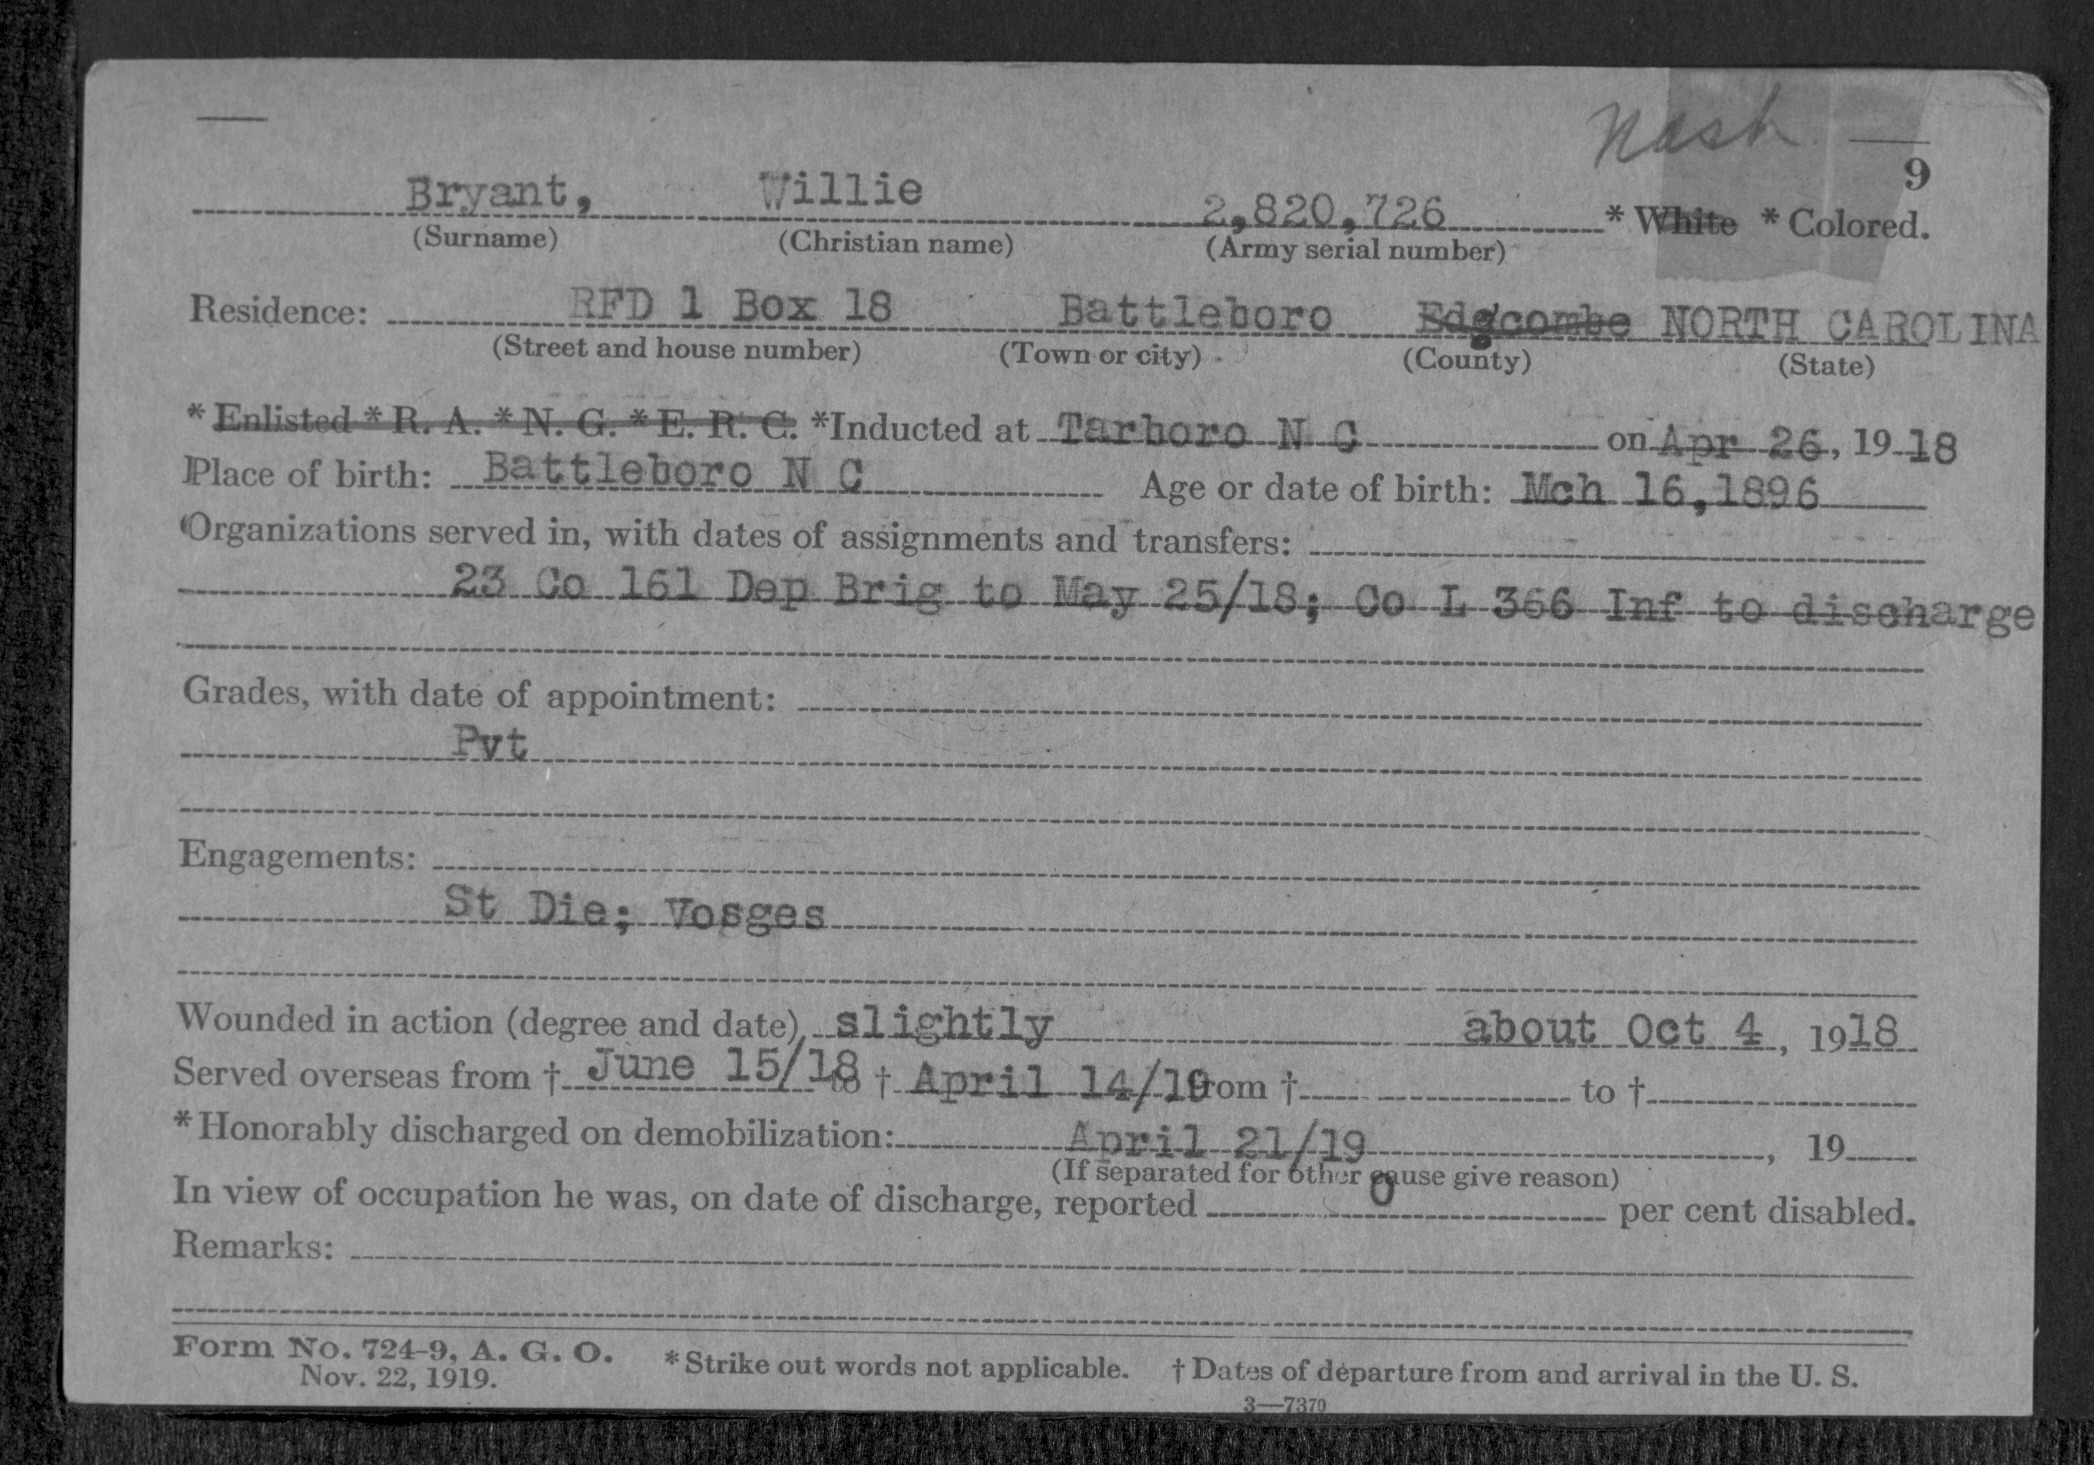 Nash
9
Bryant, Willie 2,820,726 * White * Colored.
(Surname) (Christian name) (Army serial number)
Residence: RFD 1 Box 18 Battleboro Edgcombe NORTH CAROLINA
(Street and house number) (Town or city) (County) (State)
* Enlisted * R. A. * N. G. * E. R. C. *Inducted at Tarboro N C on Apr 26, 1918
Place of birth: Battleboro N C Age or date of birth: Mch 16,1896
Organizations served in, with dates of assignments and transfers:
23 Co 161 Dep Brig to May 25/18; Co L 366 Inf to discharge
Grades, with date of appointment:
Pvt
Engagements:
St Die; Vosges
Wounded in action (degree and date) slightly about Oct 4, 1918
Served overseas from † June 15/18 to † April 14/19 from † to †
*Honorably discharged on demobilization: April 21/19, 19
(If separated for other cause give reason)
In view of occupation he was, on date of discharge, reported 0 per cent disabled.
Remarks:
Form No. 724-9, A. G. O. *Strike out words not applicable. † Dates of departure from and arrival in the U. S.
Nov. 22, 1919.
3—7370